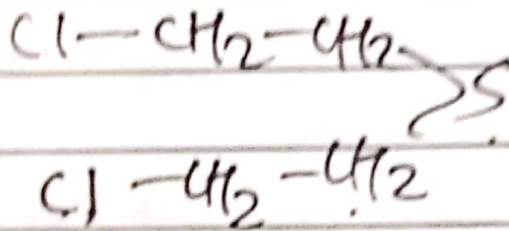 Cl-CH2-CH2
S
Cl-CH2-CH2